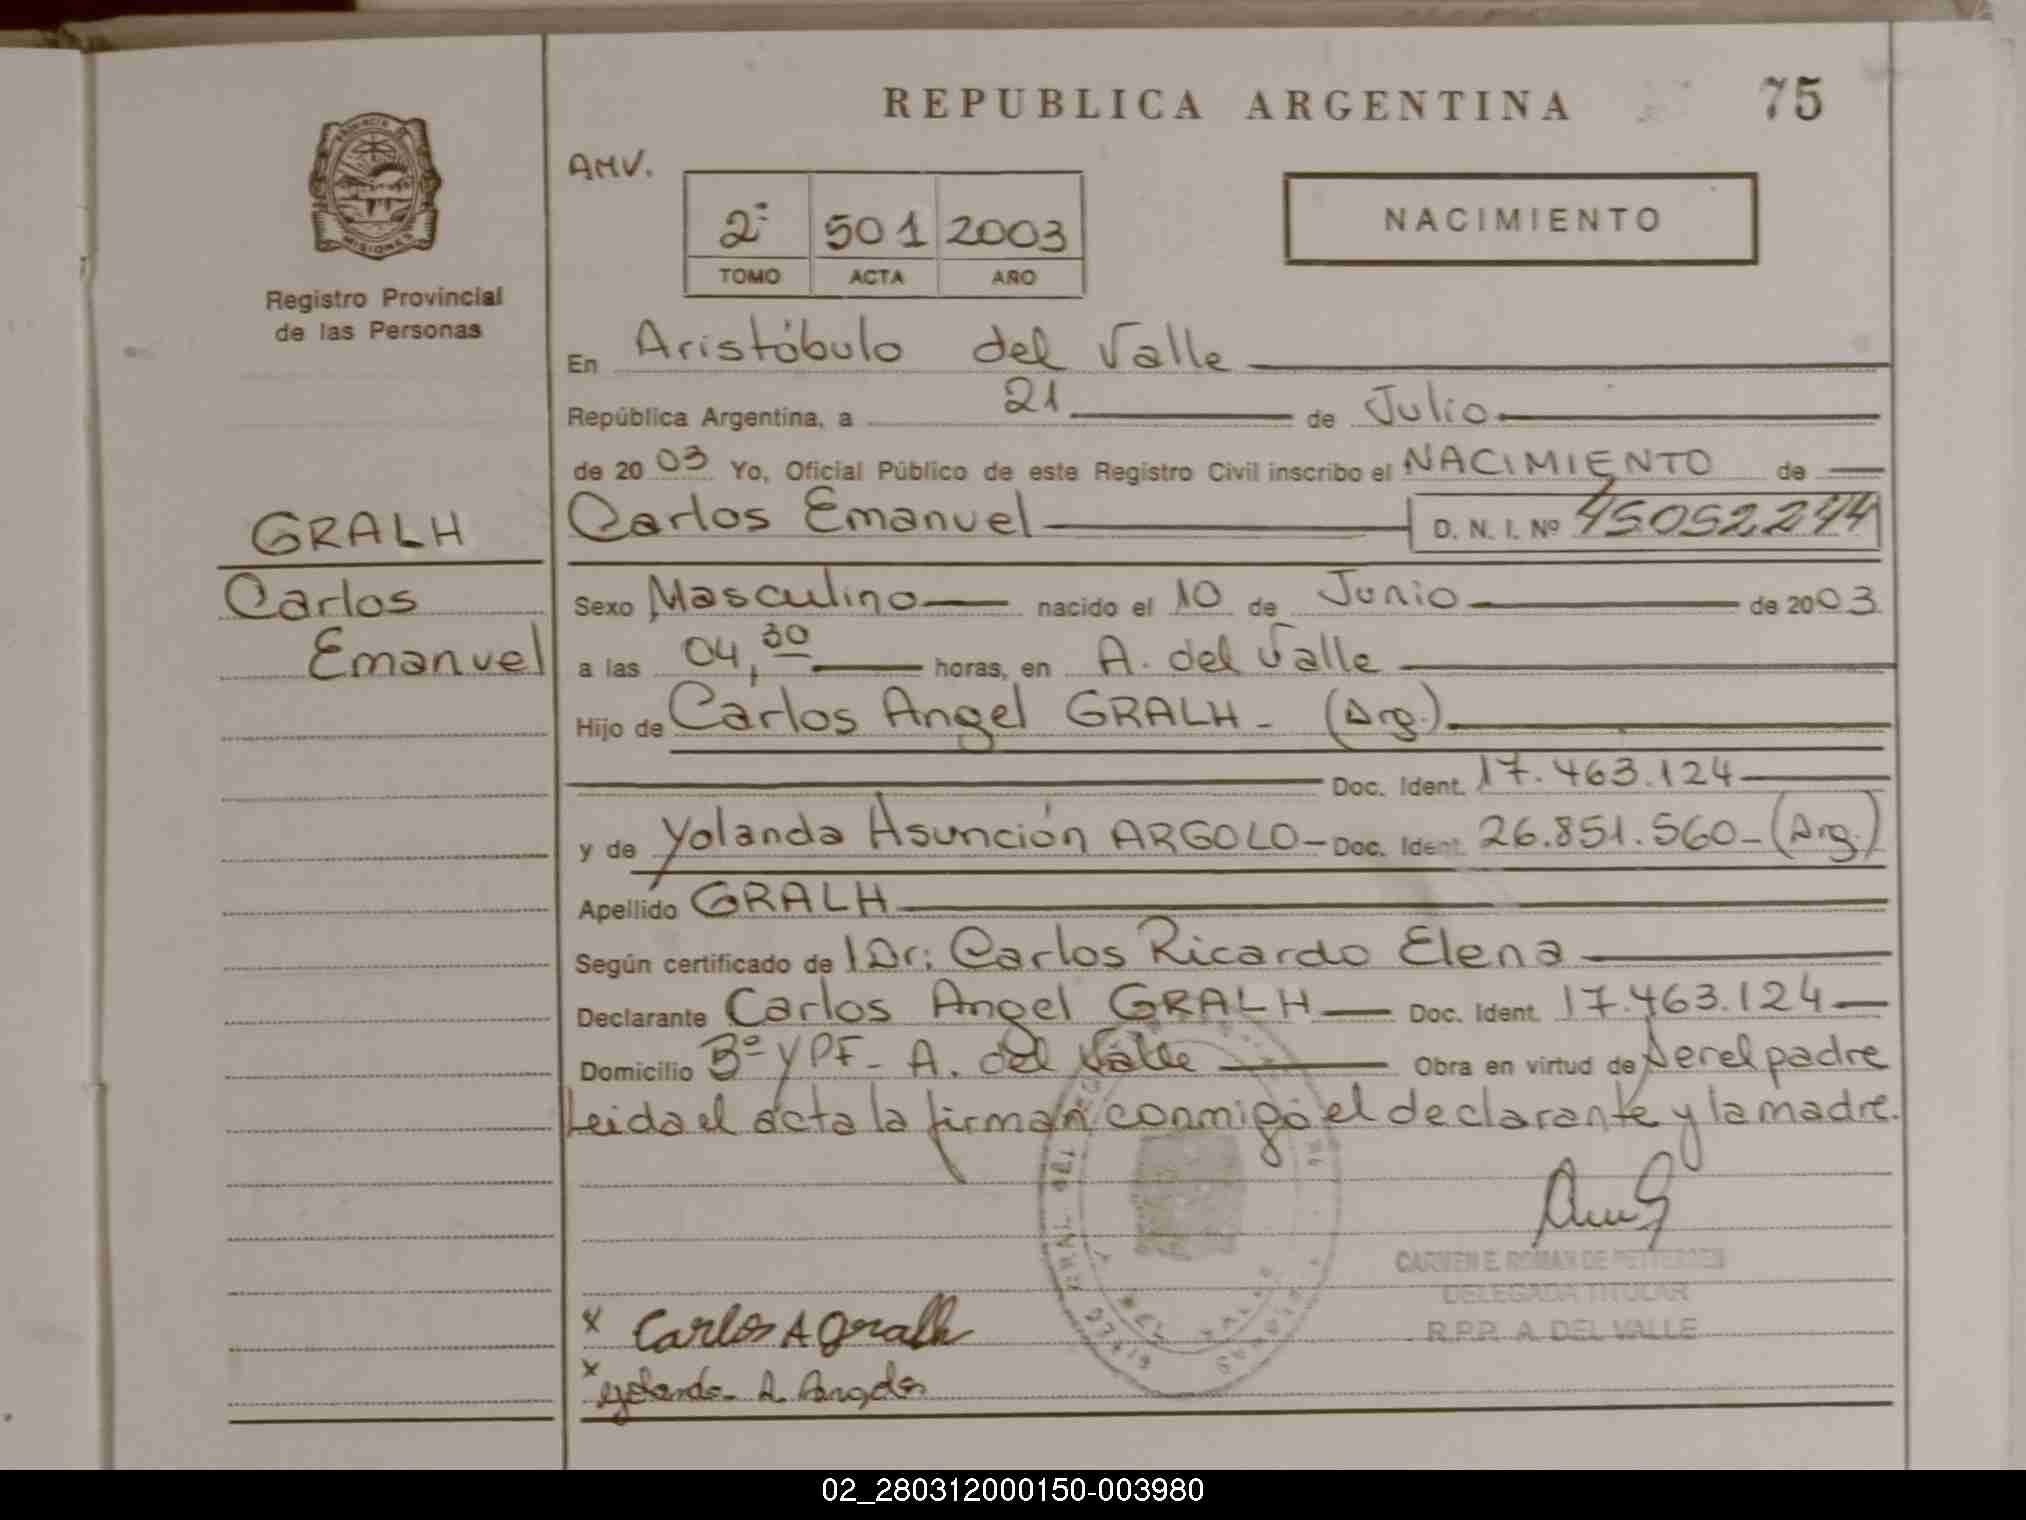 REPUBLICA ARGENTINA 75
AMV.
PROVINCIA DE
MISIONES
Registro Provincial
de las Personas
2º 501 2003
TOMO ACTA AÑO
NACIMIENTO
En Aristóbulo del Valle
República Argentina, a 21 de Julio
de 2003 Yo, Oficial Público de este Registro Civil inscribo el NACIMIENTO de
GRALH
Carlos Emanuel D. N. I. Nº 45052244
Carlos
Emanuel
Sexo Masculino nacido el 10 de Junio de 2003
a las 04,30 horas, en A. del Valle
Hijo de Carlos Angel GRALH - (Arg.)
Doc. Ident. 17.463.124
y de Yolanda Asunción ARGOLO - Doc. Ident. 26.851.560 - (Arg.)
Apellido GRALH
Según certificado de Dr: Carlos Ricardo Elena
Declarante Carlos Angel GRALH Doc. Ident. 17.463.124
Domicilio Bº YPF - A. del Valle Obra en virtud de ser el padre
Leida el acta la firman conmigo el declarante y la madre.
CARMEN E. ROMAN DE
DELEGADA TITULAR
R.P.P. A. DEL VALLE
x Carlos A Gralh
x Yolanda A.
02_280312000150-003980